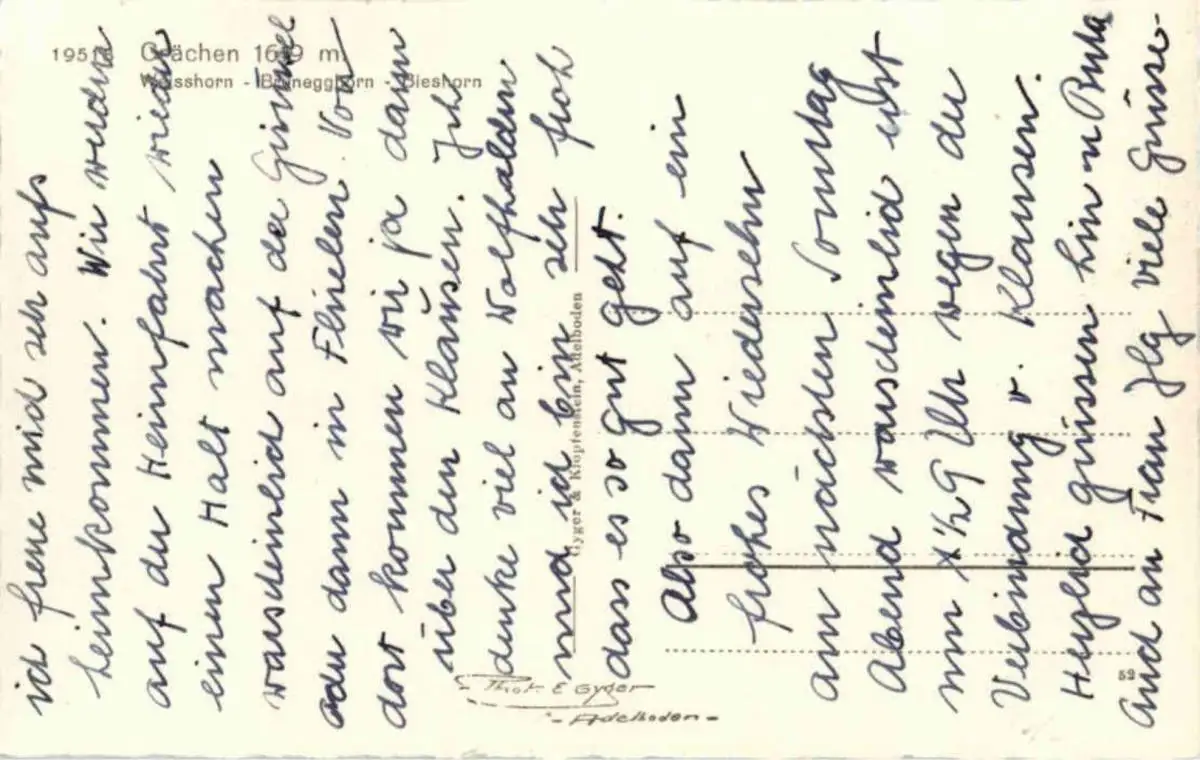 Grächen 1619 m.
Weisshorn - Brunegghorn - Bieshorn
ich freue mich seh aufs
heimkommen. Wir werden
auf der Heimfahrt wieder
einen Halt machen
warscheinlich auf der Grimsel
oder dann in Flüelen. Von
dort kommen wir ja dann
über den Klausen. Ich
denke viel an Wolfhalden
und ich bin sehr froh
dass es so gut geht.
Also dann auf ein
frohes Wiedersehn
am nächsten Sonntag
Abend warscheinlich erst
um ½ 9 Uhr wegen der
Verbindung v. Klausen.
Herzlich grüssen
Auch an Frau viele Grüsse.
Gyger & Klopfenstein, Adelboden
Phot. E Gyger
- Adelboden -